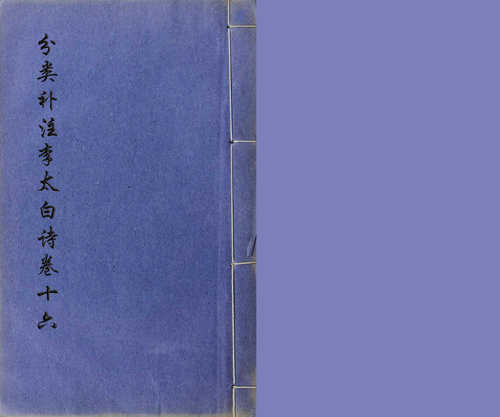 分类补注李太白诗卷十六